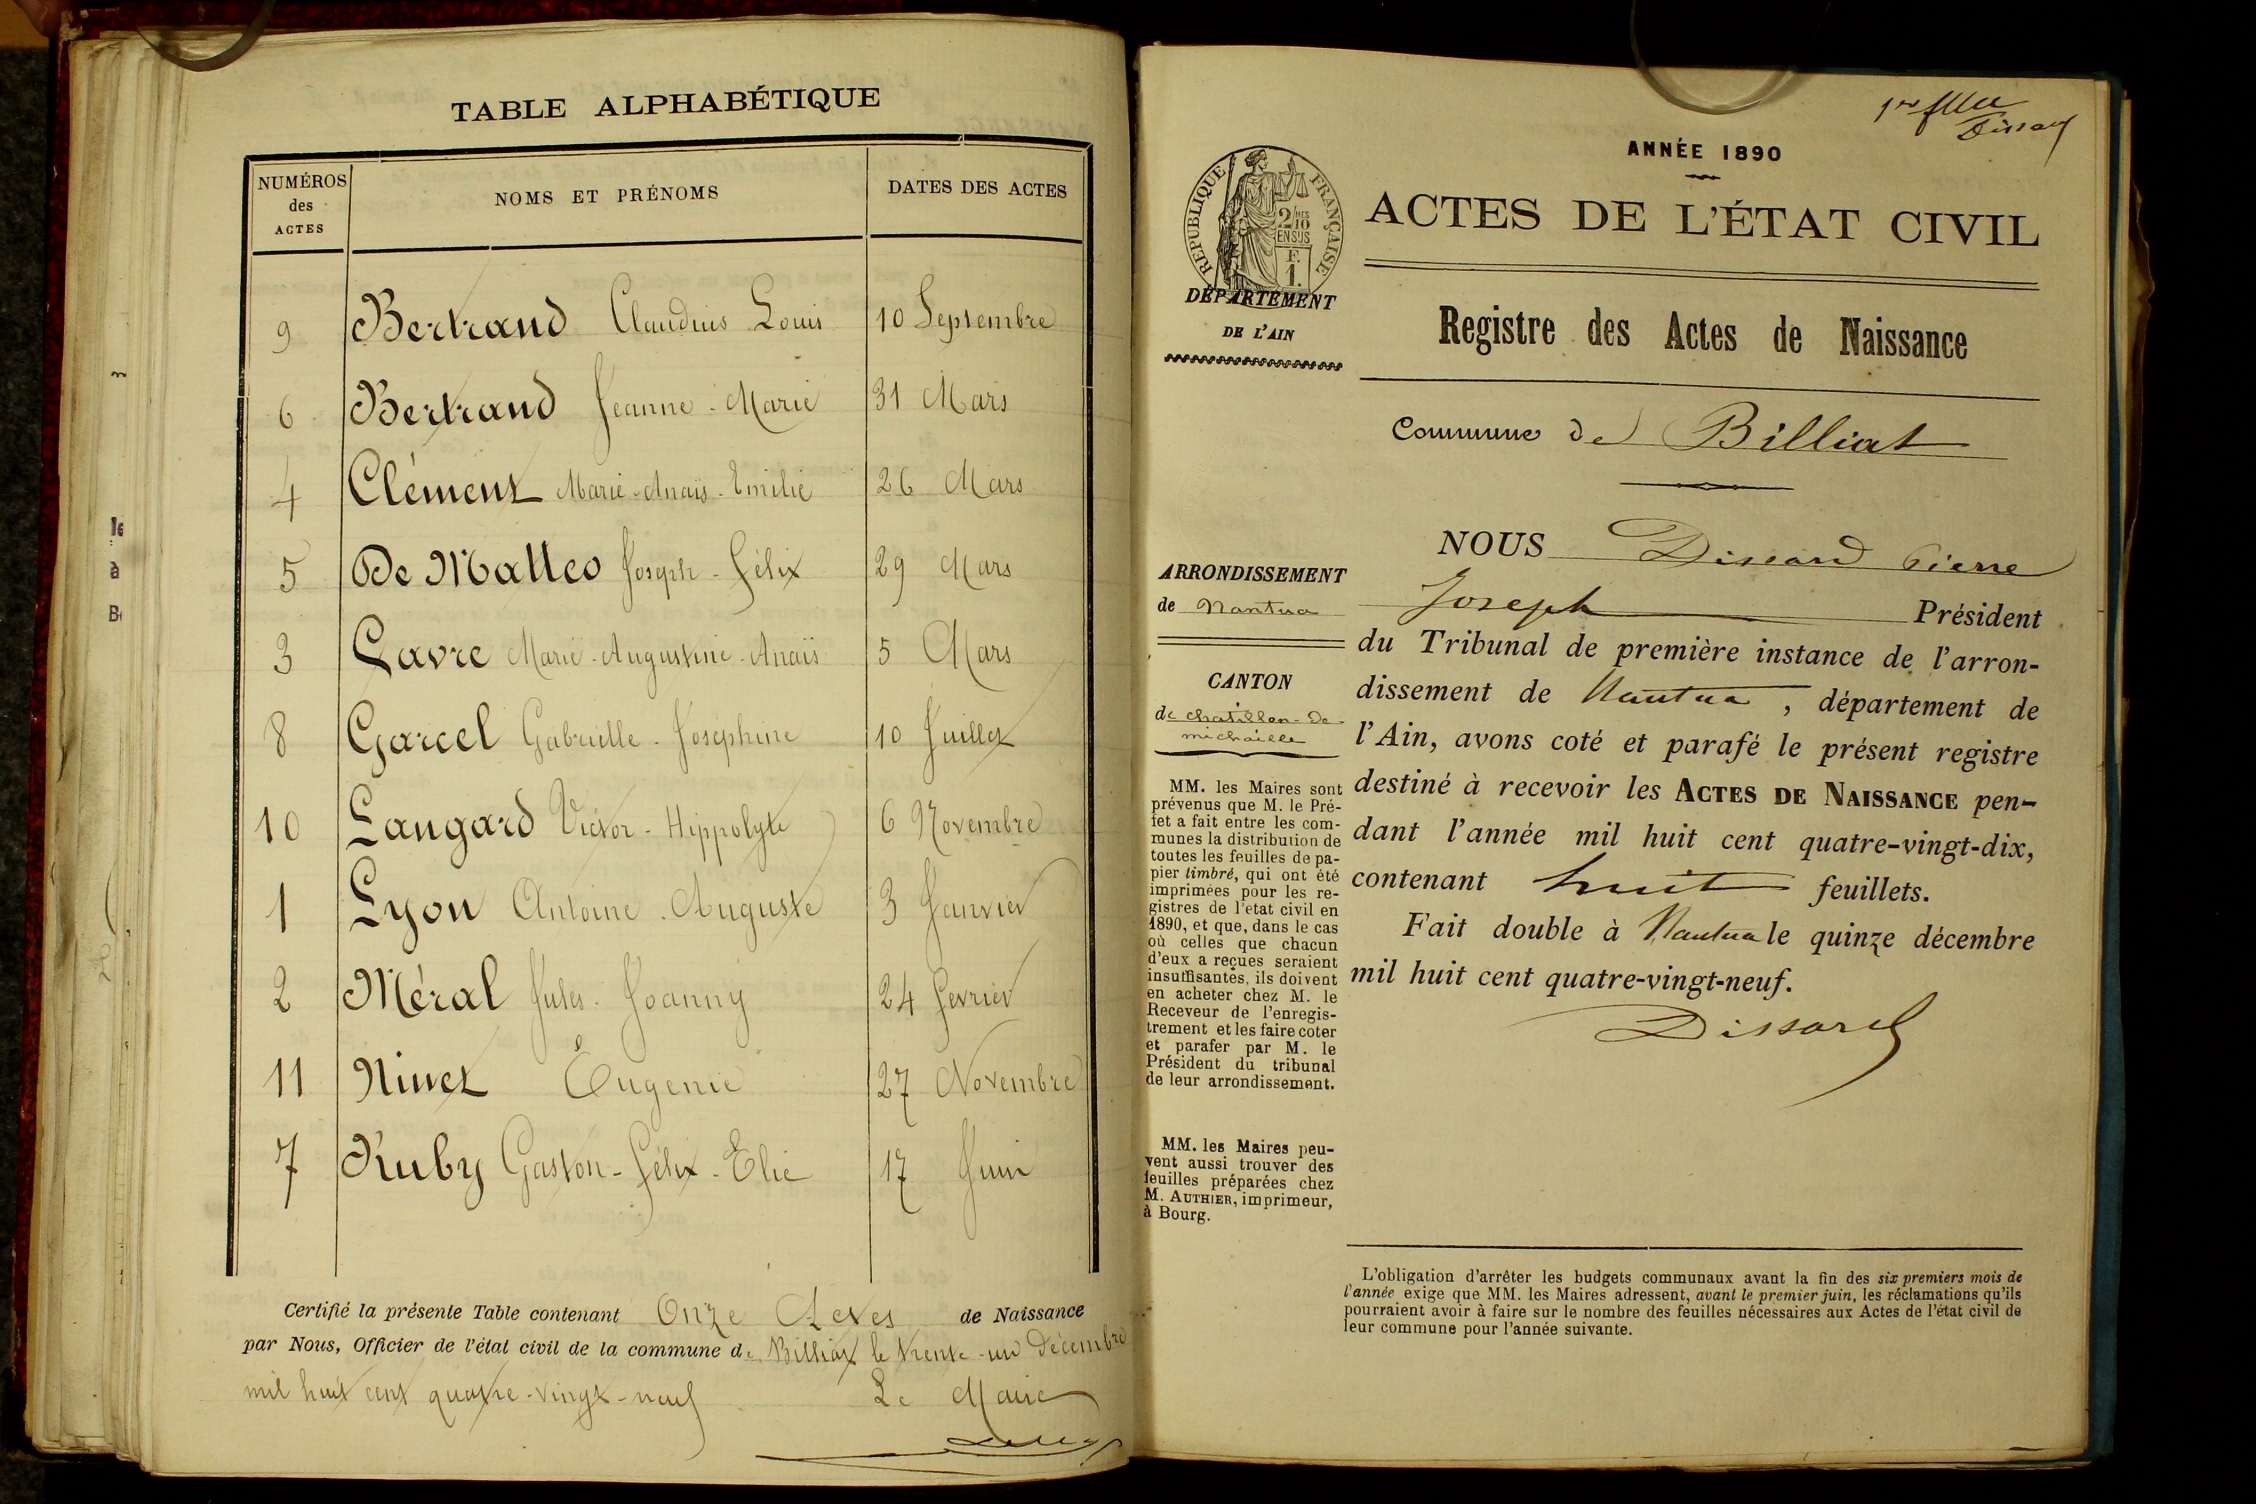 TABLE ALPHABÉTIQUE
NUMÉROS des ACTES
NOMS ET PRÉNOMS
DATES DES ACTES
9 Bertrand Claudius Louis 10 Septembre
6 Bertrand Jeanne-Marie 31 Mars
4 Clément Marie-Anaïs-Emilie 26 Mars
5 De Matteo Joseph-Félix 29 Mars
3 Favre Marie-Augustine-Anaïs 5 Mars
8 Garcel Gabrielle-Joséphine 10 Juillet
10 Langard Victor-Hippolyte 6 Novembre
1 Lyon Antoine-Auguste 3 Janvier
2 Méral Jules-Joanny 24 Fevrier
11 Ninet Eugenie 27 Novembre
7 Ruby Gaston-Félix-Elie 17 Juin
Certifié la présente Table contenant Onze Actes de Naissance
par Nous, Officier de l'état civil de la commune de Billiat le trente-un Décembre
mil huit cent quatre-vingt-neuf Le Maire
ANNÉE 1890
RÉPUBLIQUE FRANÇAISE
2/10 MES
EN SUS
F.
1.
ACTES DE L'ÉTAT CIVIL
DÉPARTEMENT
DE L'AIN
Registre des Actes de Naissance
Commune de Billiat
ARRONDISSEMENT
de Nantua
CANTON
de chatillon-de-
michaille
MM. les Maires sont
prévenus que M. le Pré-
fet a fait entre les com-
munes la distribution de
toutes les feuilles de pa-
pier timbré, qui ont été
imprimées pour les re-
gistres de l'état civil en
1890, et que, dans le cas
où celles que chacun
d'eux a reçues seraient
insuffisantes, ils doivent
en acheter chez M. le
Receveur de l'enregis-
trement et les faire coter
et parafer par M. le
Président du tribunal
de leur arrondissement.
MM. les Maires peu-
vent aussi trouver des
feuilles préparées chez
M. AUTHIER, imprimeur,
à Bourg.
NOUS Dissard Pierre
Joseph Président
du Tribunal de première instance de l'arron-
dissement de Nantua, département de
l'Ain, avons coté et parafé le présent registre
destiné à recevoir les ACTES DE NAISSANCE pen-
dant l'année mil huit cent quatre-vingt-dix,
contenant huit feuillets.
Fait double à Nantua le quinze décembre
mil huit cent quatre-vingt-neuf.
Dissard
L'obligation d'arrêter les budgets communaux avant la fin des six premiers mois de
l'année exige que MM. les Maires adressent, avant le premier juin, les réclamations qu'ils
pourraient avoir à faire sur le nombre des feuilles nécessaires aux Actes de l'état civil de
leur commune pour l'année suivante.